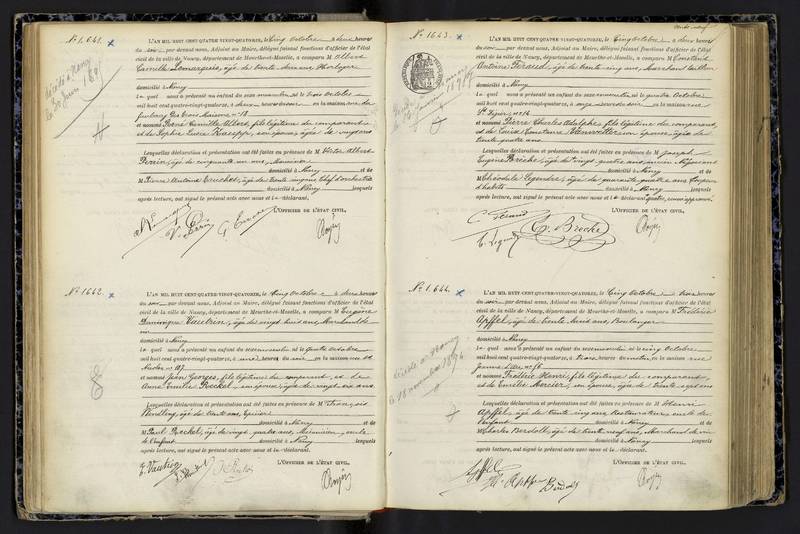 N° 1.641.
L'AN MIL HUIT CENT QUATRE VINGT-QUATORZE, le Cinq Octobre à deux heures
du soir par devant nous, Adjoint au Maire, délégué faisant fonctions d'officier de l'état
civil de la ville de Nancy, département de Meurthe-et-Moselle, a comparu M Albert
Camille âgé de trente deux ans, Horloger
domicilié à Nancy
Le quel nous a présenté un enfant du sexe masculin né le trois Octobre
mil huit cent quatre-vingt-quatorze, à deux heures du soir en la maison rue du
faubourg des trois Maisons n° 18
et nommé René Camille Albert, fils légitime du comparant
et de Sophie Lucie son épouse, âgée de vingt ans
Lesquelles déclaration et présentation ont été faites en présence de M Victor Albert
Perrin, âgé de cinquante un ans,
domicilié à Nancy et de
M Pierre Antoine âgé de trente ans Chef d'orchestre
domicilié à Nancy lesquels
après lecture, ont signé le présent acte avec nous et le déclarant.
L'OFFICIER DE L'ÉTAT CIVIL,
décédé à Nancy
N° 1642.
L'AN MIL HUIT CENT-QUATRE-VINGT-QUATORZE, le Cinq Octobre à deux heures
du soir par devant nous, Adjoint au Maire, délégué faisant fonctions d'officier de l'état
civil de la ville de Nancy, département de Meurthe-et-Moselle, a comparu M Eugène
Dominique Vautrin, âgé de vingt huit ans, Marchand de
vin
domicilié à Nancy
Le quel nous a présenté un enfant du sexe masculin né le quatre Octobre
mil huit cent quatre-vingt-quatorze, à une heure du soir en la maison rue St
Nicolas n° 107
et nommé Jean Georges, fils légitime du comparant, et de
Anne Emilie Rockel son épouse, âgée de vingt six ans
Lesquelles déclaration et présentation ont été faites en présence de M François
âgé de trente ans, Epicier
domicilié à Nancy et de
M Paul Rockel, âgé de vingt quatre ans, Mécanicien, oncle
de l'enfant domicilié à Nancy lesquels
après lecture, ont signé le présent acte avec nous et le déclarant.
L'OFFICIER DE L'ÉTAT CIVIL,
E. Vautrin
N° 1643.
L'AN MIL HUIT CENT QUATRE-VINGT-QUATORZE, le Cinq Octobre à deux heures
du soir par devant nous, Adjoint au Maire, délégué faisant fonctions d'officier de l'état
civil de la ville de Nancy, département de Meurthe-et-Moselle, a comparu M Constant
Antoine Féraud, âgé de trente cinq ans, Marchand tailleur
domicilié à Nancy
Le quel nous a présenté un enfant du sexe masculin né le quatre Octobre
mil huit cent quatre-vingt-quatorze, à onze heures du soir en la maison rue
St Dizier n° 16
et nommé Pierre Charles Adolphe, fils légitime du comparant,
et de Luise son épouse, âgée de
trente quatre ans
Lesquelles déclaration et présentation ont été faites en présence de M Joseph
Eugène Brèche, âgé de vingt quatre ans, ancien Négociant
domicilié à Nancy et de
M Théodule Legendre, âgé de quarante quatre ans Coupeur
d'habits domicilié à Nancy lesquels
après lecture, ont signé le présent acte avec nous et le déclarant
L'OFFICIER DE L'ÉTAT CIVIL,
C. Féraud
E. Brèche
N° 1.644.
L'AN MIL HUIT CENT QUATRE-VINGT-QUATORZE, le Cinq Octobre à deux heures
du soir par devant nous, Adjoint au Maire, délégué faisant fonctions d'officier de l'état
civil de la ville de Nancy, département de Meurthe-et-Moselle, a comparu M Frédéric
Apffel, âgé de trente huit ans, Boulanger
domicilié à Nancy
Le quel nous a présenté un enfant du sexe masculin né le cinq Octobre
mil huit cent quatre-vingt-quatorze, à trois heures du matin en la maison rue
Jeanne d'Arc n° 6
et nommé Frédéric Henri, fils légitime du comparant,
et de Emilie Mercier, son épouse, âgée de trente sept ans
Lesquelles déclaration et présentation ont été faites en présence de M Henri
Apffel, âgé de trente cinq ans, Restaurateur, oncle de
l'enfant domicilié à Nancy et de
M Charles Berdoll, âgé de trente neuf ans, Marchand de vin
domicilié à Nancy lesquels
après lecture, ont signé le présent acte avec nous et le déclarant.
L'OFFICIER DE L'ÉTAT CIVIL,
décédé à Nancy
le 18 novembre 1896
Apffel